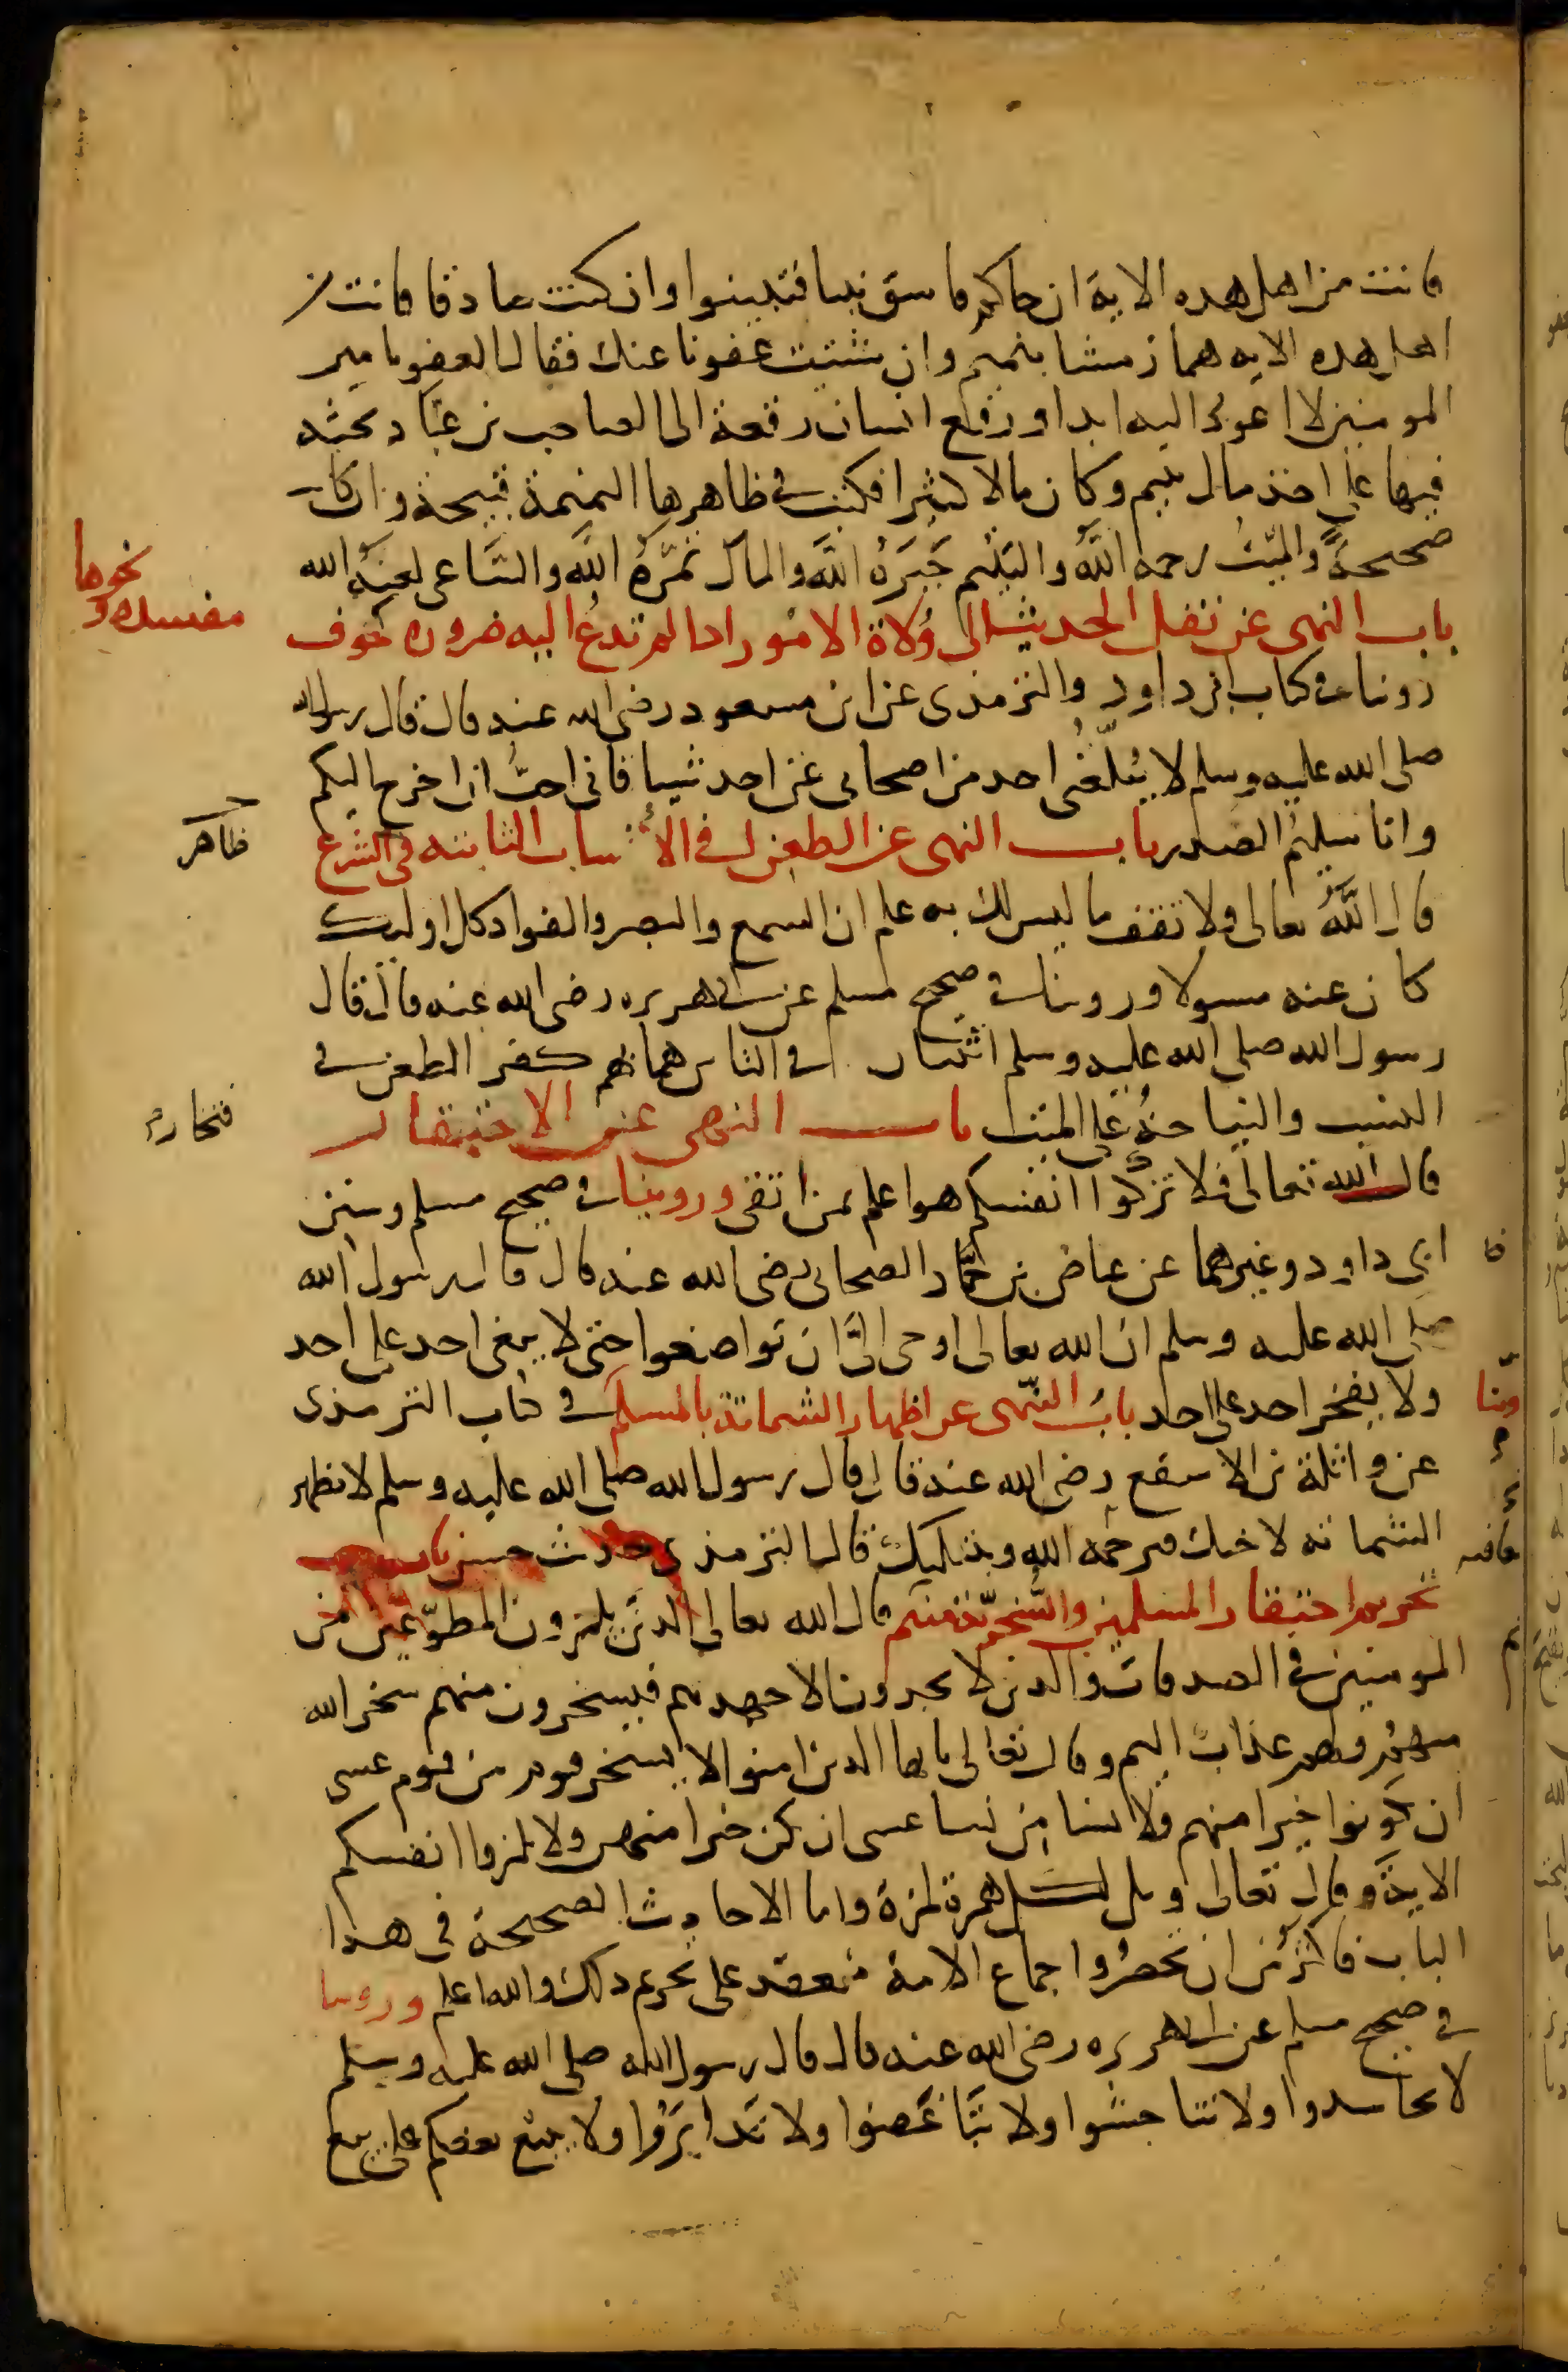 فانت من اهل هده الاية ان جاكم فاسق بنبا فتبينوا وان كنت صادقا فانت من
اهل هده الايه هماز مشا بنميم وان شئت عفونا عنك فقال العفو يا امير
المومنين لا اعود اليه ابدا ورفع انسان رقعة الى الصاحب بن عباد يحثه
فيها على اخذ مال يتيم وكان مالا كثيرا فكتب في ظاهرها النميمة قبيحة وان كانت
صحيحة والميت رحمه الله واليتيم جبره الله والمال ثمّره الله والساعى لعنه الله
باب النهى عن نقل الحديث الى ولاة الامور ادا لم تدع اليه ضروره لخوف
مفسده ونحوها
روينا في كتاب ابى داود والترمذى عن ابن مسعود رضى الله عنه قال قال رسول الله
صلى الله عليه وسلم لا يبلّغنى احد من اصحابى عن احد شيا فانى احبّ ان اخرج اليكم
وانا سليم الصدر باب النهى عن الطعن في الانساب الثابته في الشرع
ظاهر
قال الله تعالى ولا تقف ما ليس لك به علم ان السمع والبصر والفواد كل اوليك
كان عنه مسولا وروينا في صحيح مسلم عن ابى هريره رضى الله عنه قال قال
رسول الله صلى الله عليه وسلم اثنتان في الناس هما بهم كفر الطعن في
النسب والنياحة على الميت باب النهى عن الافتخار
فتخار
قال الله تعالى فلا تزكّوا انفسكم هو اعلم بمن اتقى وروينا في صحيح مسلم وسنن
ابى داود وغيرهما عن عياض بن حمّار الصحابى رضى الله عنه قال قال رسول الله
صلى الله عليه وسلم ان الله تعالى اوحى الىّ ان تواضعوا حتى لا يبغى احد على احد
ولا يفخر احد على احد باب النّهى عن اظهار الشماتة بالمسلم في كتاب الترمذى
عن واثلة بن الاسقع رضى الله عنه قال قال رسول الله صلى الله عليه وسلم لا تظهر
الشماته لاخيك فيرحمه الله ويبتليك قال الترمذى حديث حسن باب
تحريم احتقار المسلمين والسّخريّة منهم قال الله تعالى الدين يلمزون المطوّعين من
المومنين في الصدقات والدين لا يجدون الا جهدهم فيسخرون منهم سخر الله
منهم ولهم عذاب اليم وقال تعالى يا ايها الدين امنوا لا يسخر قوم من قوم عسى
ان يكونوا خيرا منهم ولا نسا من نسا عسى ان يكن خيرا منهن ولا تلمزوا انفسكم
الاية وقال تعالى ويل لكل همزة لمزة واما الاحاديث الصحيحة في هدا
الباب فاكثر من ان تحصر واجماع الامة منعقد على تحريم دلك والله اعلم وروينا
في صحيح مسلم عن ابى هريره رضى الله عنه قال قال رسول الله صلى الله عليه وسلم
لا تحاسدوا ولا تناجشوا ولا تباغضوا ولا تدابروا ولا يبع بعضكم على بيع